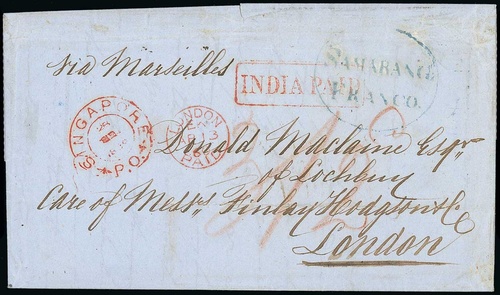 via Marseilles
INDIA PAID
SAMARANG
FRANCO.
SINGAPORE
P.O.
LONDON
13
PAID
Donald Maclaine Esqr.
of Lochbuy
Care of Messrs Finlay Hodgson & Co
London